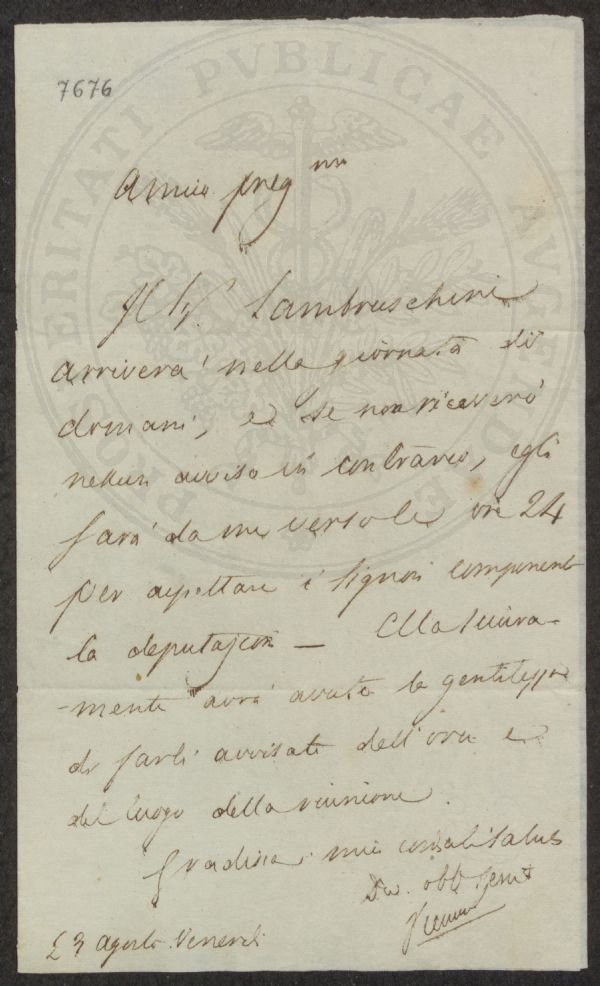 7676
PROSPERITATI PVBLICAE AVGENDAE
Amico preg mo
Il Sig. Lambruschini
arriverà nella giornata di
domani, e se non riceverò
nessun avviso in contrario, egli
sarà da me verso le ore 24
per aspettare i Signori componenti
la deputazione — Ella sicura-
-mente avrà avuta la gentilezza
di farli avvisati dell'ora e
del luogo della riunione.
Gradisca i miei cordiali saluti
Dev. obb Serv
23 agosto Venerdì